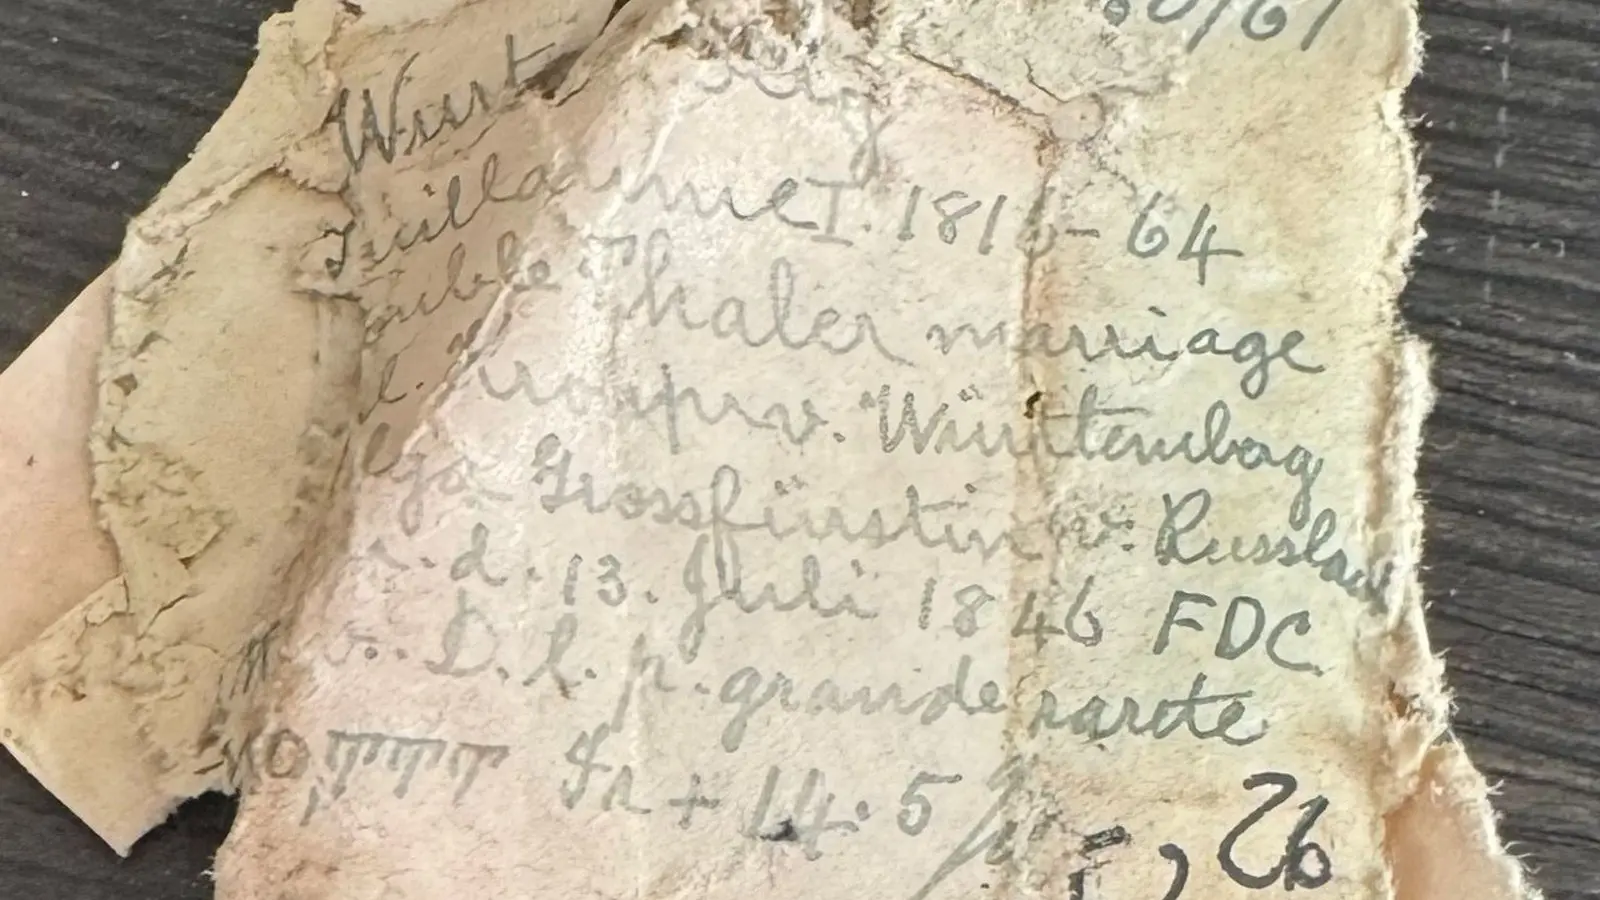 0/61
Wurt
Guillaume I. 1816-64
ouble Thaler marriage
d. Kronprv. Würtemberg
lga Grossfürstin v. Russland
a. d. 13. Juli 1846 FDC
v. D. l. p. grande rareté
Fr + 14.5%
26